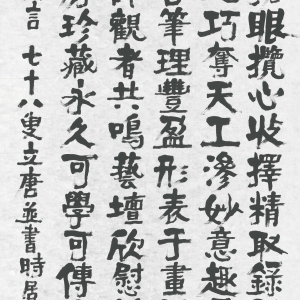 眼攬心收擇精取錄
巧奪天工滲妙意趣
筆理豐盈形表于畫
觀者共鳴藝壇欣慰
珍藏永久可學可傳
言 七十八叟立唐並書時居